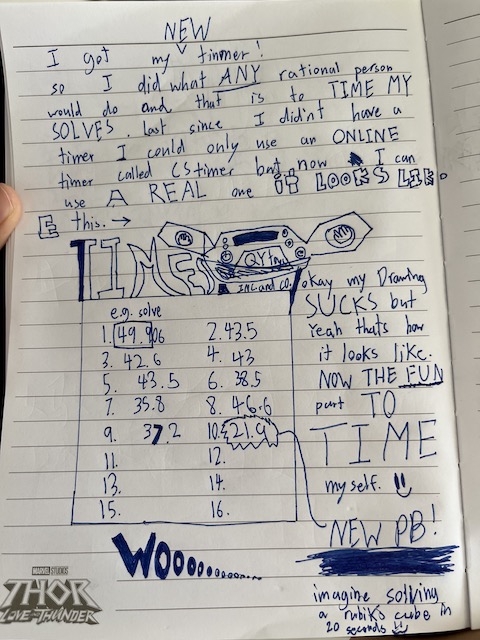 NEW
I got my timmer!
so I did what ANY rational person
would do and that is to TIME MY
SOLVES. last since I didn't have a
timer I could only use an ONLINE
timer called CStimer but now I can
use A REAL one IT LOOKS LIK
E this. →
TIMES
QY
INC. and CO.
e.g. solve
1. 49.906 2. 43.5
3. 42.6 4. 43
5. 43.5 6. 38.5
7. 35.8 8. 46.6
9. 37.2 10. 21.9
11. 12.
13. 14.
15. 16.
okay my Drawing
SUCKS but
Yeah thats how
it looks like.
NOW THE FUN
part TO
TIME
my self.
NEW PB!
WOooooooo..........
imagine solving
a rubiks cube in
20 seconds
MARVEL STUDIOS
THOR
LOVE AND THUNDER